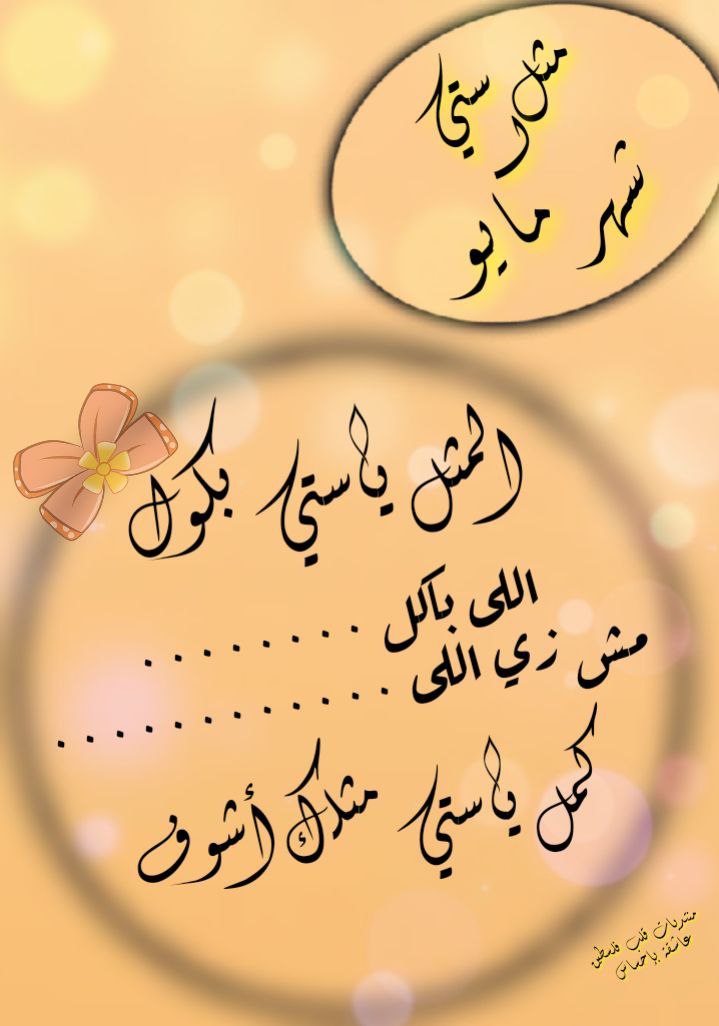 مثل ستي
شهر مايو
المثل ياستي بكول
اللى باكل ........
مش زي اللى ............
كمل ياستي مثلك أشوف
منتديات قلب فلسطين
عاشقة بإحساس